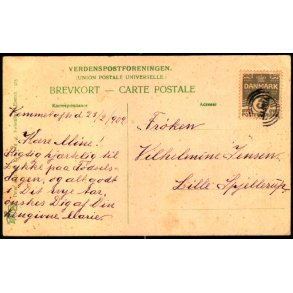 VERDENSPOSTFORENINGEN.
(UNION POSTALE UNIVERSELLE)
BREVKORT — CARTE POSTALE
Korrespondance
Adresse
DANMARK
d. 21/2 1909
Kære Mine!
Rigtig hjærtelig til
Lykke paa Fødsels-
dagen, og alt godt
i Det nye Aar,
ønskes Dig af Din
hengivne Marie
Frøken
Vilhelmine Jensen
Lille